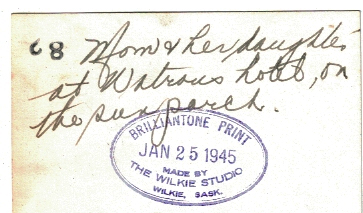 68 Mom & her daughter
at Watrous hotel, on
the sun porch.
BRILLIANTONE PRINT
JAN 25 1945
MADE BY
THE WILKIE STUDIO
WILKIE, SASK.